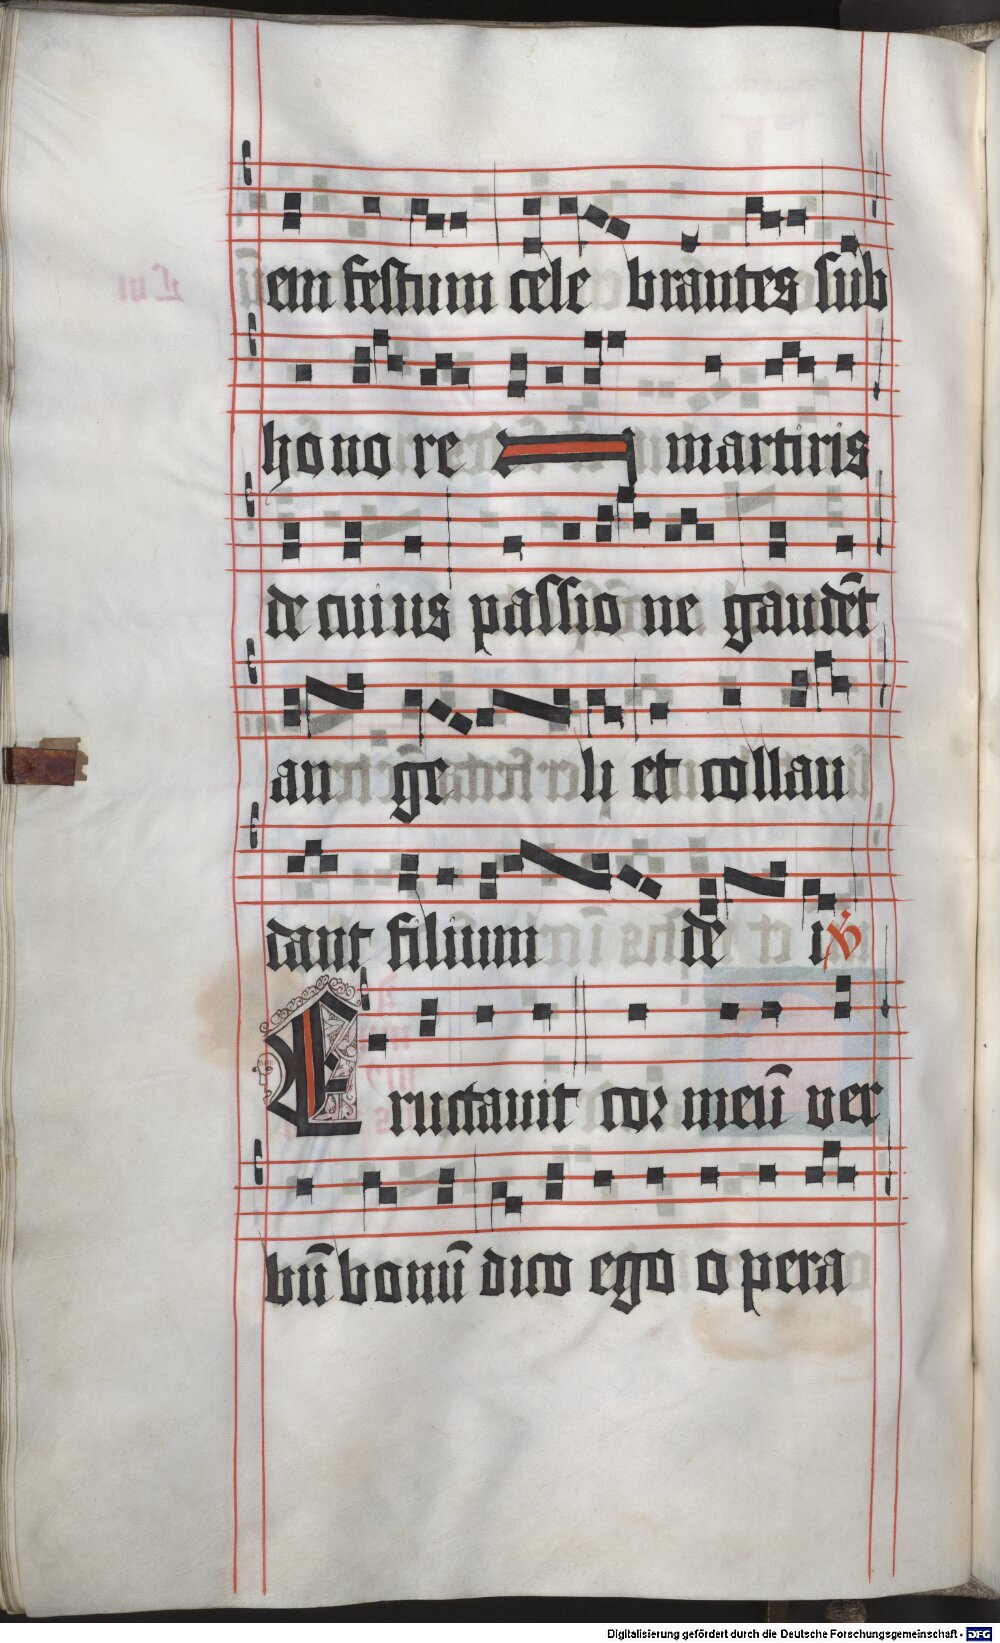 em festum cele brantes sub
hono re martiris
de cuius passio ne gaudēt
an ge li et collau
dant filium de i
Eructavit cor meū ver
bū bonū dico ego opera
Digitalisierung gefördert durch die Deutsche Forschungsgemeinschaft - DFG